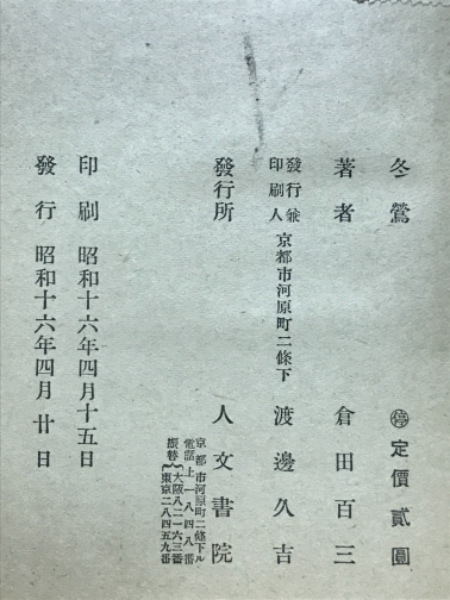 冬鶯　㊡定價貳圓
著者　倉田百三
發行兼印刷人　京都市河原町二條下　渡邊久吉
發行所　人文書院
京都市河原町二條下ル
電話上一八四八番
振替{大阪八二一六三番
東京二八四五九番
印刷　昭和十六年四月十五日
發行　昭和十六年四月廿日